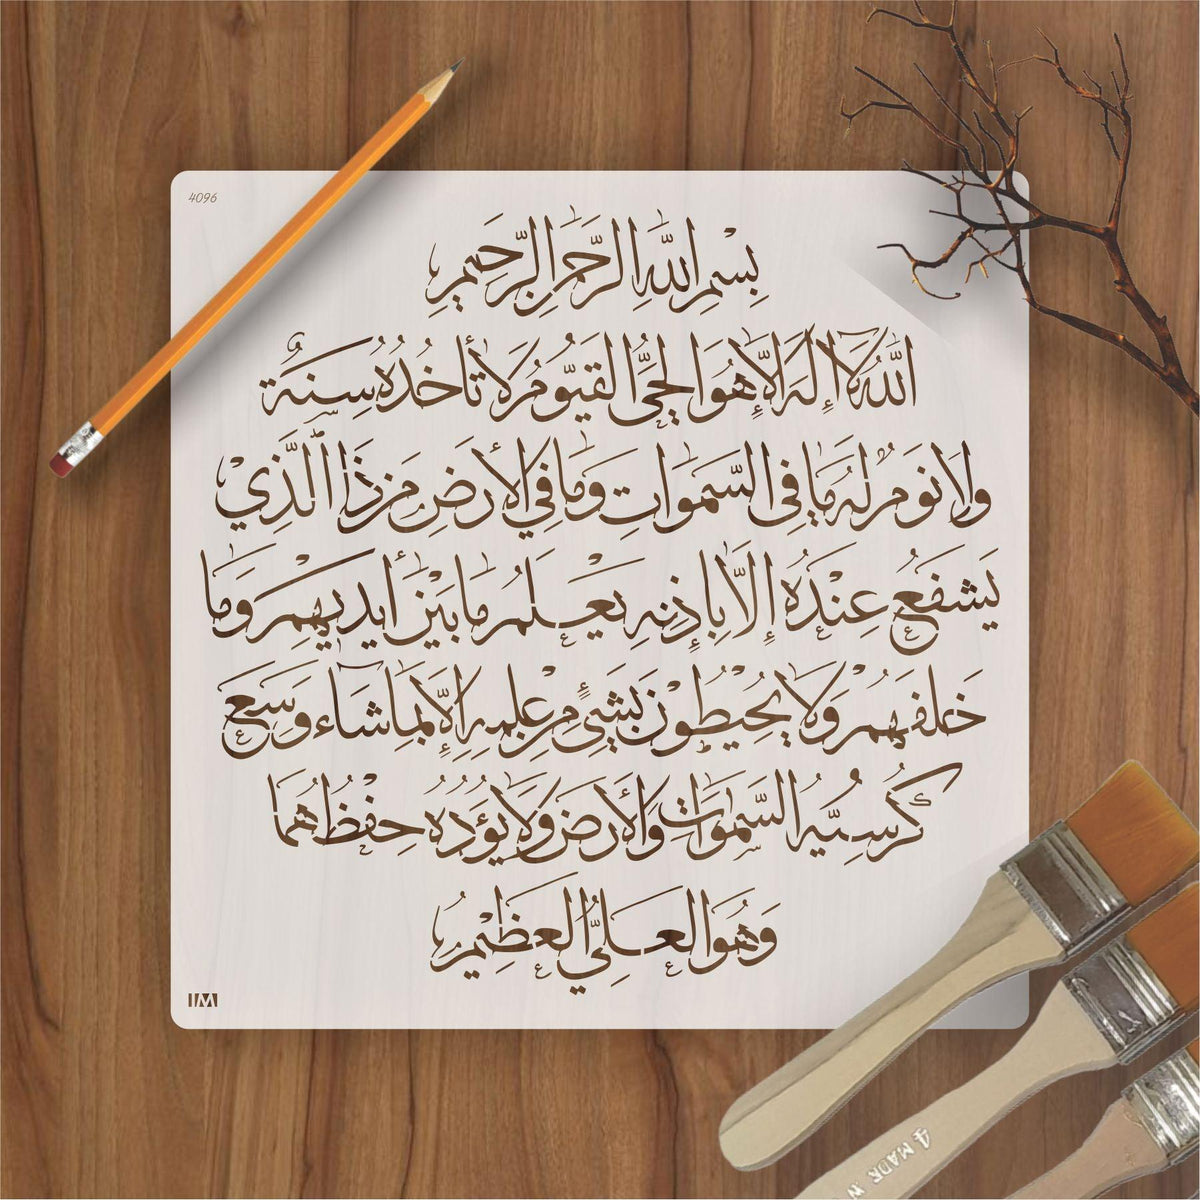 4096
بِسْمِ اللَّهِ الرَّحْمَٰنِ الرَّحِيمِ
اللَّهُ لَا إِلَٰهَ إِلَّا هُوَ الْحَيُّ الْقَيُّومُ لَا تَأْخُذُهُ سِنَةٌ
وَلَا نَوْمٌ لَهُ مَا فِي السَّمَوَاتِ وَمَا فِي الْأَرْضِ مَنْ ذَا الَّذِيْ
يَشْفَعُ عِنْدَهُ إِلَّا بِإِذْنِهِ يَعْلَمُ مَا بَيْنَ أَيْدِيهِمْ وَمَا
خَلْفَهُمْ وَلَا يُحِيْطُوْنَ بِشَيْءٍ مِنْ عِلْمِهِ إِلَّا بِمَا شَاءَ وَسِعَ
كُرْسِيُّهُ السَّمَوَاتِ وَالْأَرْضَ وَلَا يَؤُدُهُ حِفْظُهُمَا
وَهُوَ الْعَلِيُّ الْعَظِيْمُ
IM
4 MADE